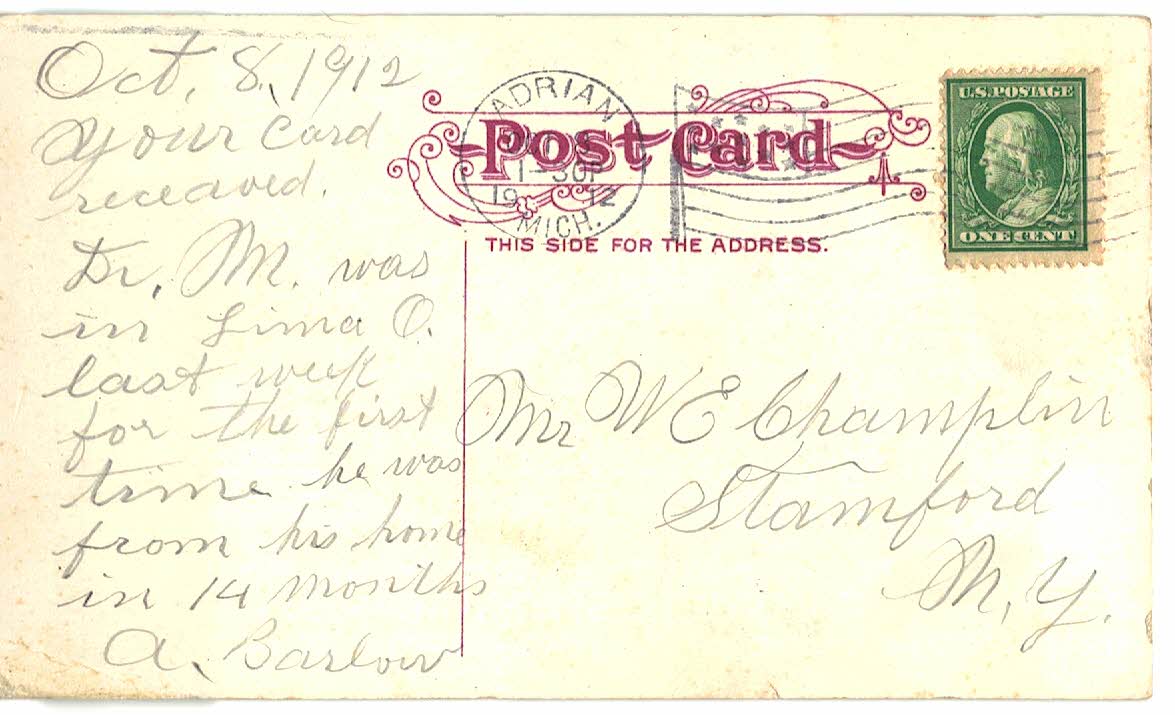 Oct, 8, 1912
Your Card
receaved.
Dr. M. was
in Lima O.
last week
for the first
time he was
from his home
in 14 months
A. Barlow
ADRIAN
1912
MICH.
Post Card
THIS SIDE FOR THE ADDRESS.
U.S. POSTAGE
ONE CENT
Mr W E Champlin
Stamford
N. Y.